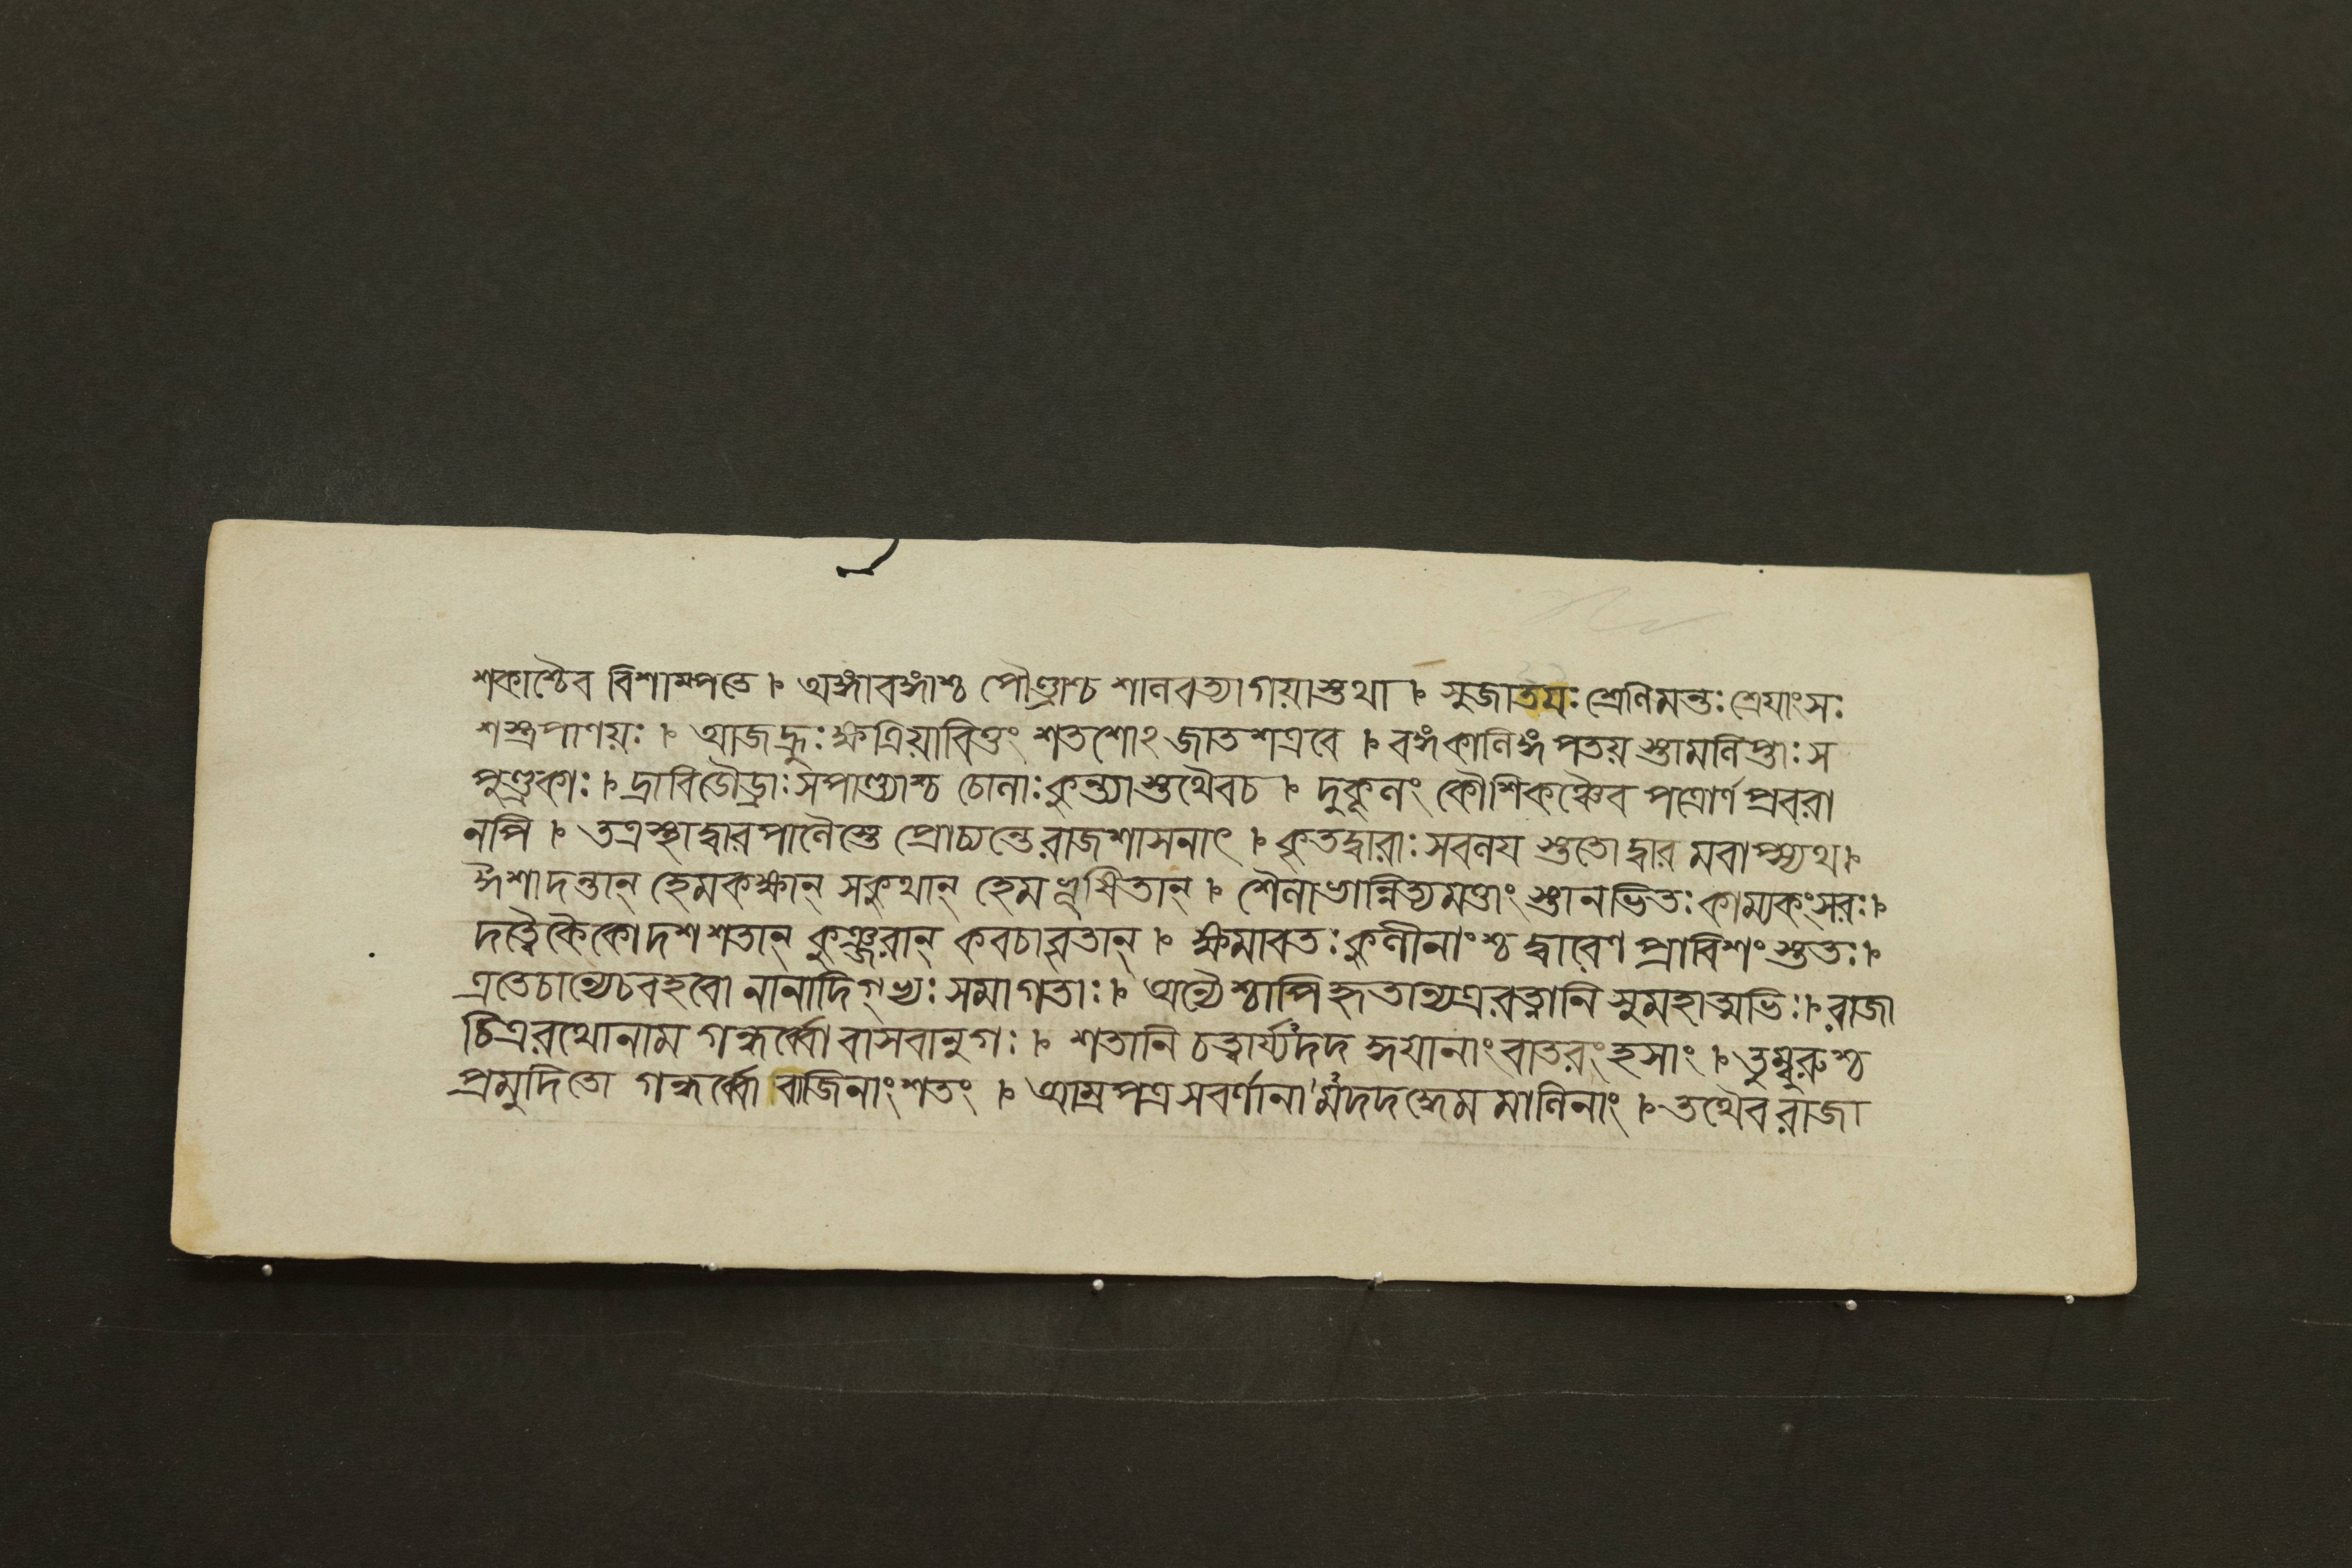 শকাশ্চৈব বিশাম্পতে । অঙ্গাবঙ্গাশ্চ পৌণ্ড্রাশ্চ শানবত্যাগয়াস্তথা । সুজাতয়ঃ শ্রেণিমন্তঃ শ্রেয়াংসঃ
শস্ত্রপাণয়ঃ । আজহ্রুঃ ক্ষত্রিয়াবিত্তং শতশোঽজাতশত্রবে । বঙ্গকালিঙ্গপতয়স্তাম্রলিপ্তাঃ স
পুণ্ড্রকাঃ । দ্রাবিডৌড্রাঃ সপাণ্ড্যাশ্চ চোলাঃ কুন্ত্যাস্তথৈবচ । দুকূলং কৌশিকঞ্চৈব পত্রোর্ণ প্রবরা
নপি । তত্রস্থাদ্বারপালৈস্তে প্রোচ্যন্তে রাজশাসনাৎ । কৃতদ্বারাঃ সবলয স্ততো দ্বার মবাপ্স্যথ ।
ঈশাদন্তান্ হেমকক্ষান্ সকুথান্ হেমভূষিতান্ । শৈলাভান্নিত্যমত্তাং শ্চানভিতঃ কাম্যকংসরঃ ।
দত্বৈকৈকো দশ শতান্ কুঞ্জরান্ কবচাবৃতান্ । ক্ষমাবতঃ কুলীনাংশ্চ দ্বারেণ প্রাবিশংস্ততঃ ।
এতেচান্যেচবহবো নানাদিগ্ভ্যঃ সমাগতাঃ । অন্যৈশ্চাপি হৃতান্যত্র রত্নানি সুমহাত্মভিঃ । রাজা
চিত্ররথোনাম গন্ধর্ব্বো বাসবানুগঃ । শতানি চত্বার্য্যদদ দ্ধয়ানাং বাতরংহসাং । তুম্বুরুশ্চ
প্রমুদিতো গন্ধর্ব্বো বাজিনাং শতং । আম্রপত্র সবর্ণানা মদদদ্ধেম মালিনাং । তথৈব রাজা